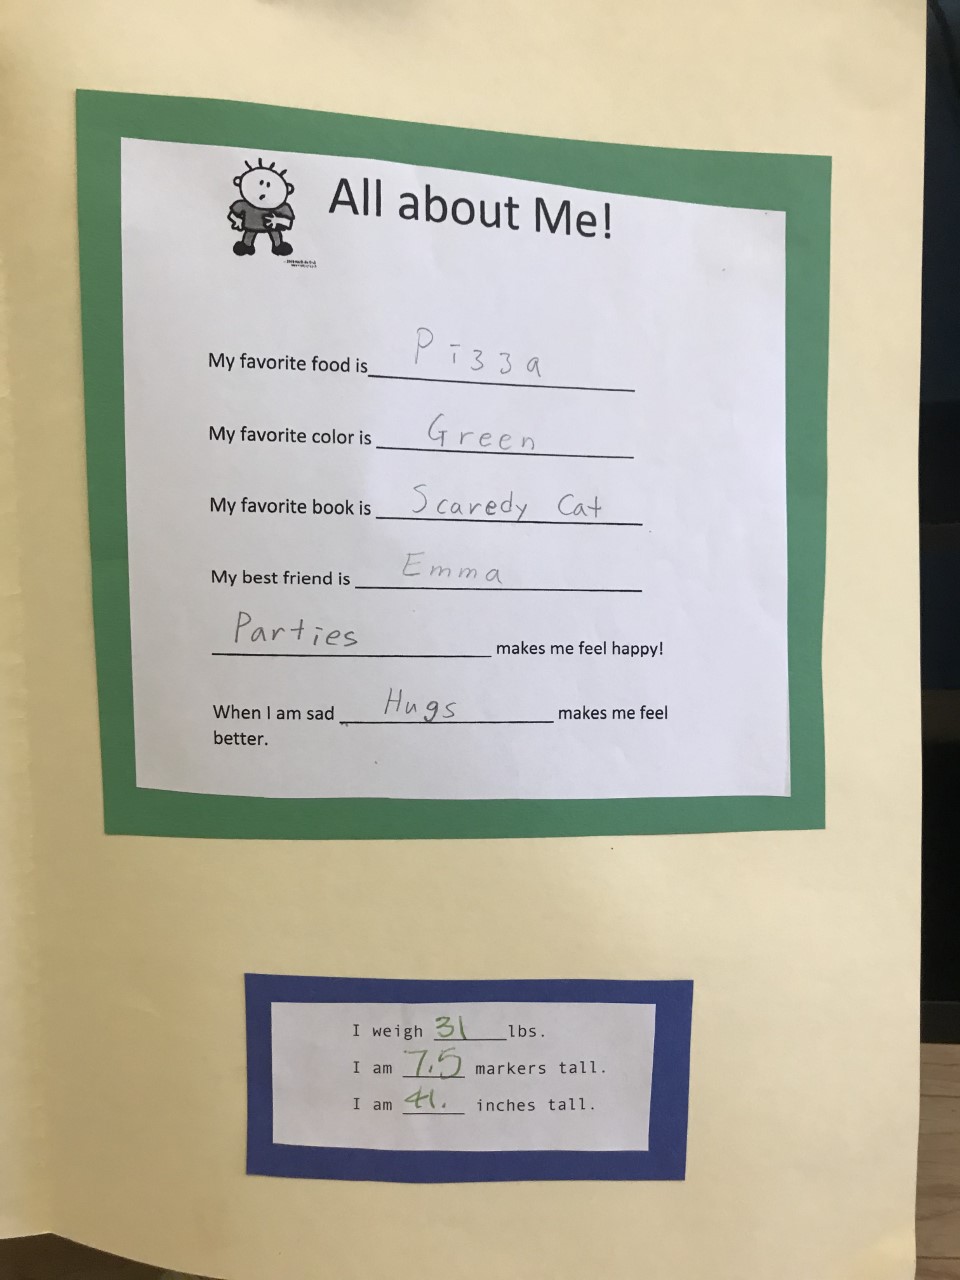 All about Me!
My favorite food is Pizza
My favorite color is Green
My favorite book is Scaredy Cat
My best friend is Emma
Parties makes me feel happy!
When I am sad Hugs makes me feel
better.
I weigh 31 lbs.
I am 7.5 markers tall.
I am 41. inches tall.